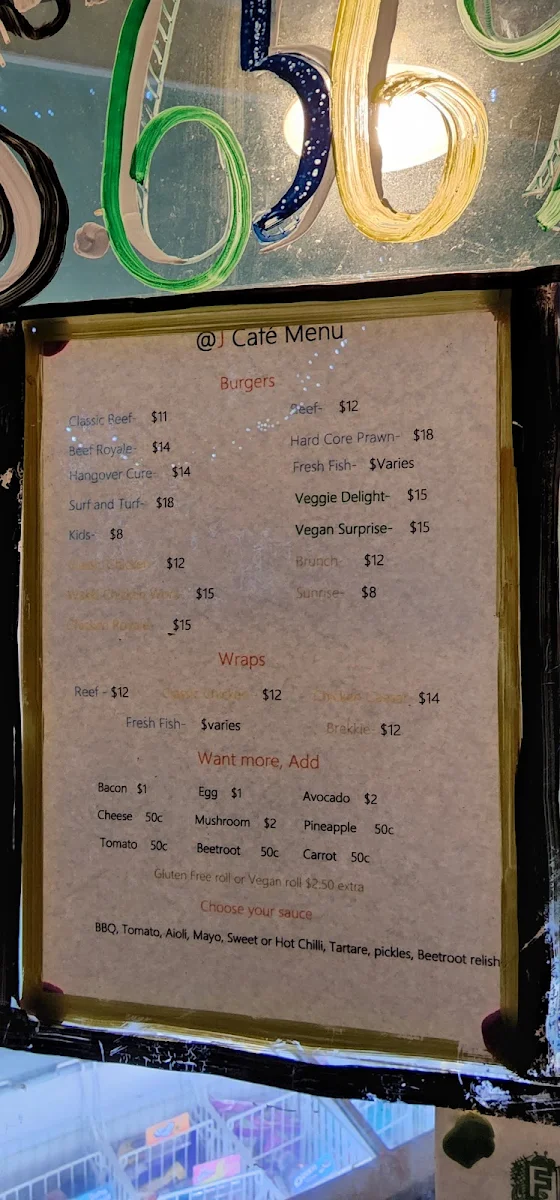 656
@J Café Menu
Burgers
Classic Beef- $11
Beef Royale- $14
Hangover Cure- $14
Surf and Turf- $18
Kids- $8
Classic Chicken- $12
$15
Chicken Royale- $15
Reef- $12
Hard Core Prawn- $18
Fresh Fish- $Varies
Veggie Delight- $15
Vegan Surprise- $15
Brunch- $12
Sunrise- $8
Wraps
Reef - $12 Classic Chicken- $12 Chicken Caesar- $14
Fresh Fish- $varies Brekkie- $12
Want more, Add
Bacon $1 Egg $1 Avocado $2
Cheese 50c Mushroom $2 Pineapple 50c
Tomato 50c Beetroot 50c Carrot 50c
Gluten Free roll or Vegan roll $2.50 extra
Choose your sauce
BBQ, Tomato, Aioli, Mayo, Sweet or Hot Chilli, Tartare, pickles, Beetroot relish